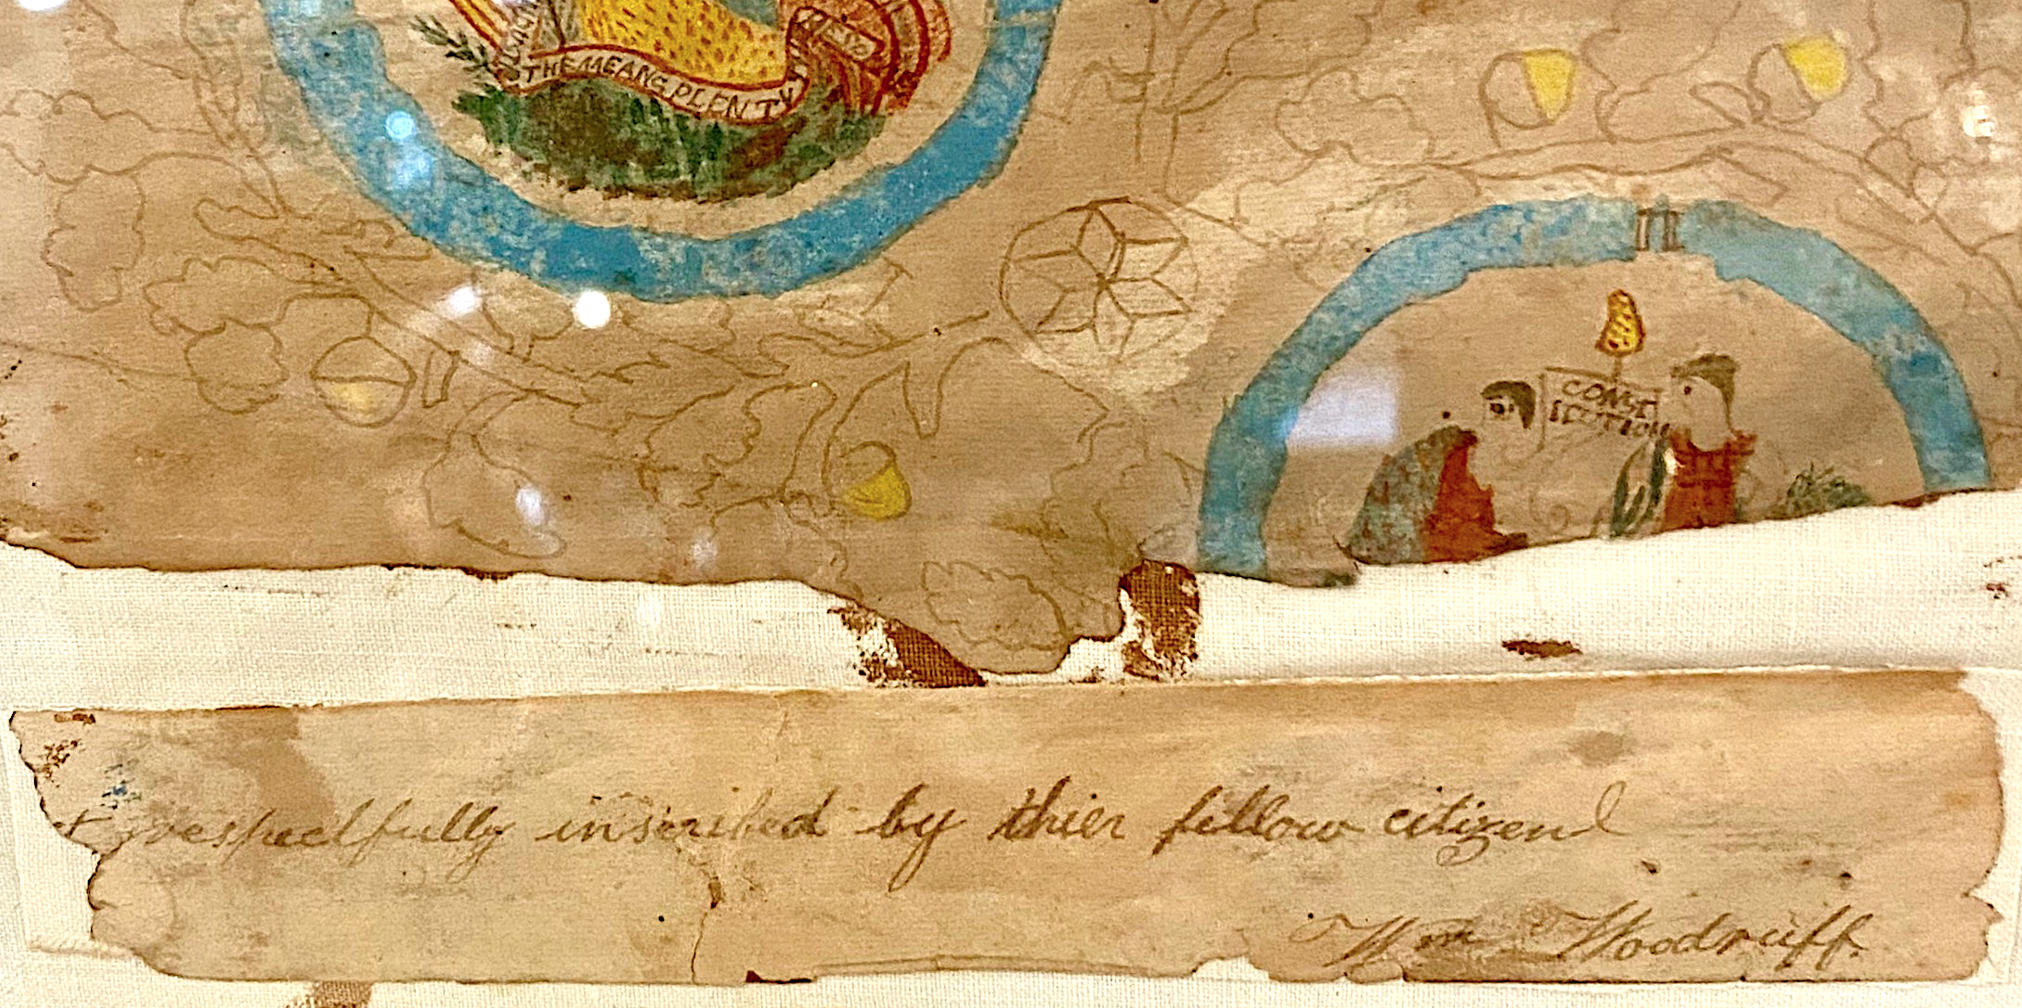 THE MEANS PLENTY
CONST
ITUTION
respectfully inscribed by thier fellow citizen
Wm Woodruff.